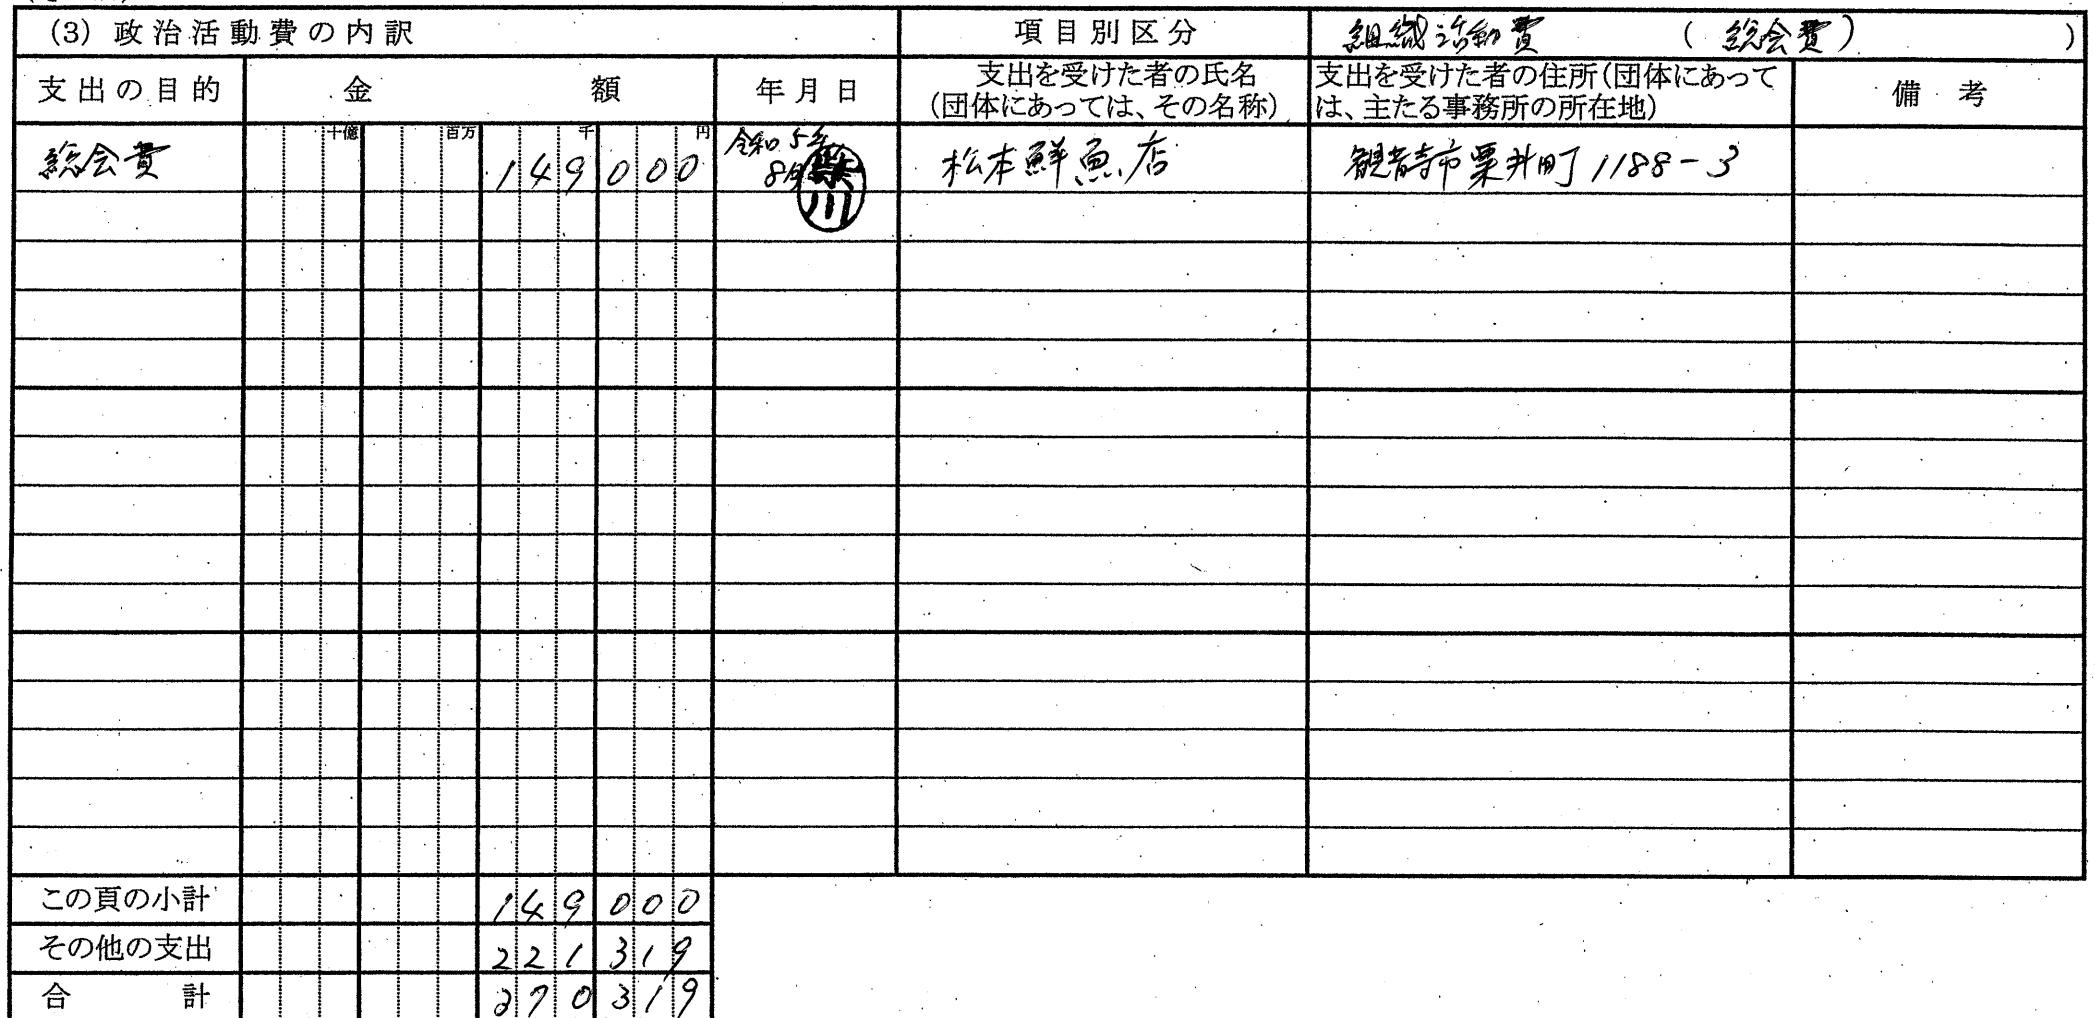 (3) 政治活動費の内訳 項目別区分 組織活動費 (総会費) )
支出の目的 金 額 年月日 支出を受けた者の氏名 (団体にあっては、その名称) 支出を受けた者の住所(団体にあっては、主たる事務所の所在地) 備考
十億 百万 千 円
総会費 149000 令和5年 8月 川 松本鮮魚店 観音寺市粟井町1188-3
この頁の小計 149000
その他の支出 221319
合計 370319